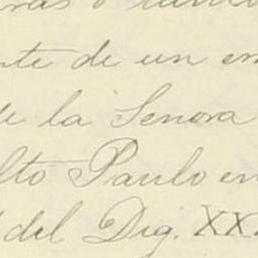 ras o
nte de un en
de la Senora
lto Paulo en
del Dig. XX